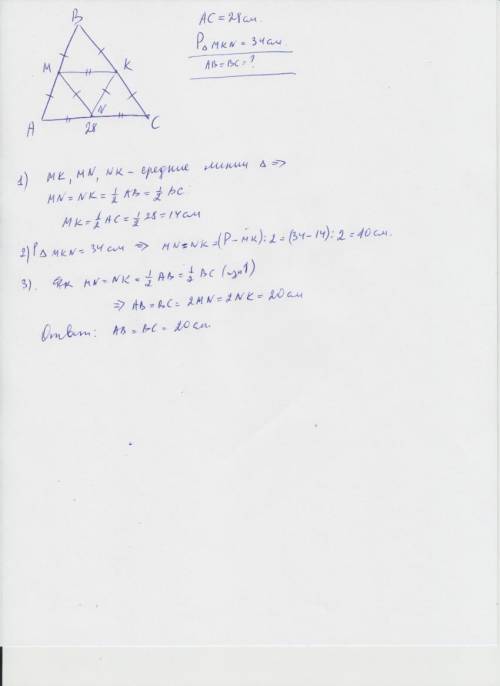 B
AC = 28 см.
P△MKN = 34 см.
AB = BC = ?
M
K
A
N
28
C
1) MK, MN, NK – средние линии △ ⇒
MN = NK = 1/2 AB = 1/2 BC.
MK = 1/2 AC = 1/2 28 = 14 см
2) P△MKN = 34 см ⇒ MN = NK = (P – MK) : 2 = (34 – 14) : 2 = 10 см.
3). Так MN = NK = 1/2 AB = 1/2 BC (из 1)
⇒ AB = BC = 2MN = 2NK = 20 см
Ответ: AB = BC = 20 см